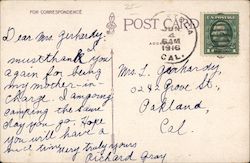 FOR CORRESPONDENCE
POST CARD
JUN
4
6 AM
1916
CAL.
Dear Mrs. Gerhardy:
I must thank you
again for being
my mother-in
charge. I am going
camping the same
day you go. Hope
you will have a
nice time. Very truly yours
Richard Gray
Mrs. L. Gerhardy,
Grove St.,
Oakland,
Cal.